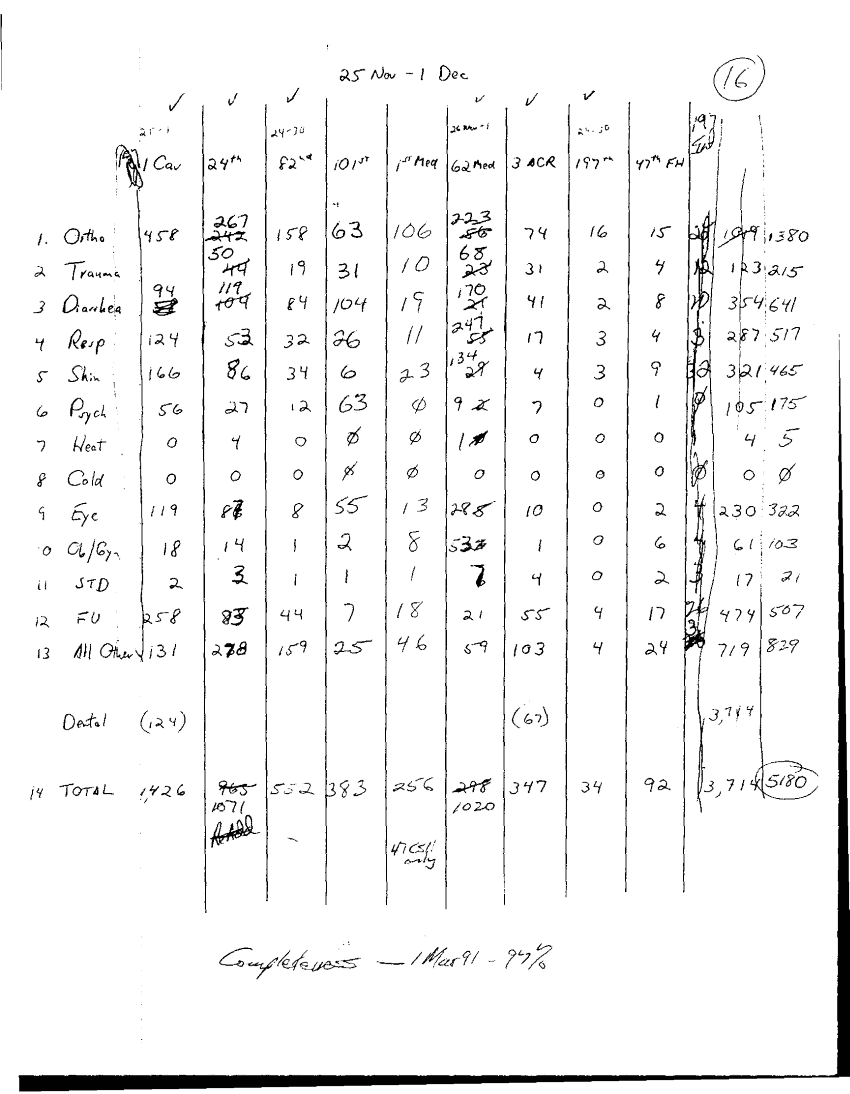 25 Nov - 1 Dec
16
25-1 24-30 26 Nov-1 24-30 197
1 Cav 24th 82nd 101st 1st Med 62 Med 3 ACR 197th 47th FH
1. Ortho 458 267 158 63 106 223 74 16 15 1380
2 Trauma 50 44 19 31 10 68 23 31 2 4 12 123 215
3 Diarrhea 94 119 104 84 104 19 170 21 41 2 8 354 641
4 Resp 124 53 32 26 11 247 55 17 3 4 3 287 517
5 Skin 166 86 34 6 23 134 29 4 3 9 32 321 465
6 Psych 56 27 12 63 Ø 9 7 0 1 Ø 105 175
7 Heat 0 4 0 Ø Ø 1 0 0 0 4 5
8 Cold 0 0 0 Ø Ø 0 0 0 0 Ø 0 Ø
9 Eye 119 8 55 13 28 10 0 2 4 230 322
10 Ob/Gyn 18 14 1 2 8 53 1 0 6 4 61 103
11 STD 2 3 1 1 1 7 4 0 2 3 17 21
12 FU 258 83 44 7 18 21 55 4 17 26 474 507
13 All Other 131 278 159 25 46 59 103 4 24 719 829
Dental (124) (67) 3,714
14 TOTAL 1,426 965 552 383 256 298 347 34 92 3,714 5180
1071 1020
ReAdd
47 CSH only
Completeness — 1 Mar 91 - 97%